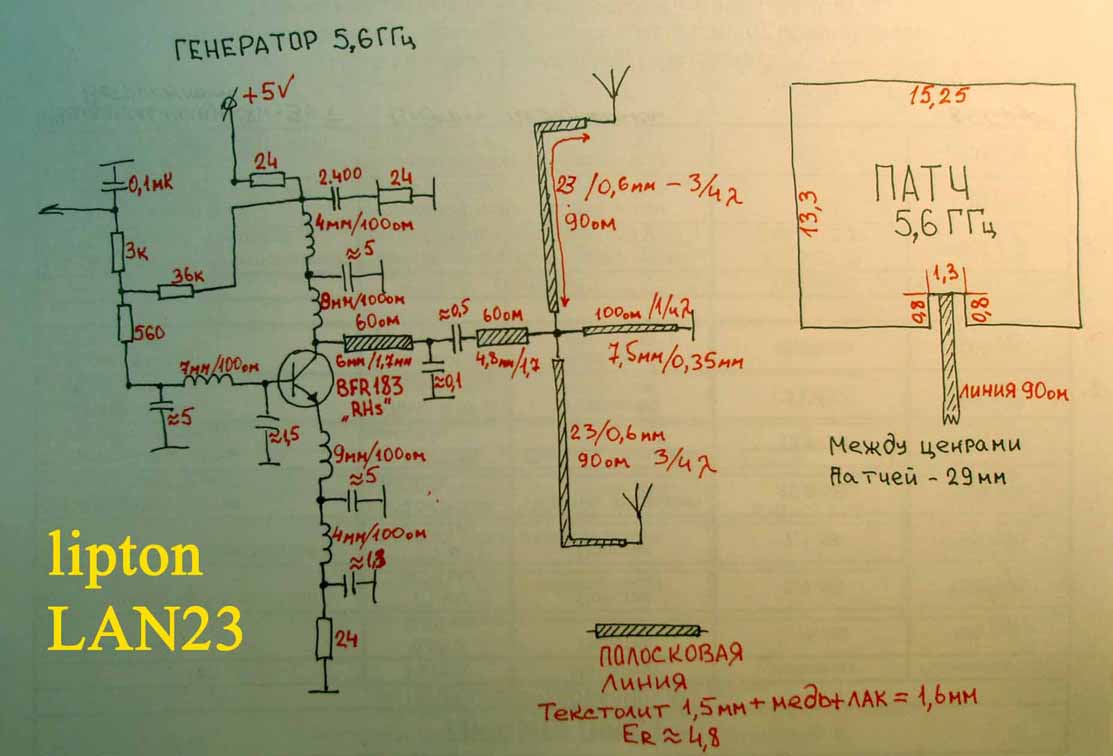 ГЕНЕРАТОР 5,6ГГц
+5V
24
0,1мк
2.400
24
4мм/100ом
3к
36к
≈5
8мм/100ом
560
60ом
6мм/1,7мм
≈0,5
60ом
4,8мм/1,7
≈0,1
7мм/100ом
BFR183
„RHs"
≈5
≈1,5
9мм/100ом
≈5
4мм/100ом
24
23/0,6мм – 3/4λ
90ом
100ом/1/4λ
7,5мм/0,35мм
23/0,6мм
90ом 3/4λ
15,25
ПАТЧ
5,6ГГц
13,3
1,3
0,8
0,8
ЛИНИЯ 90ом
Между ценрами
Патчей – 29мм
ПОЛОСКОВАЯ
ЛИНИЯ
Текстолит 1,5мм+медь+ЛАК = 1,6мм
ER ≈ 4,8
lipton
LAN23